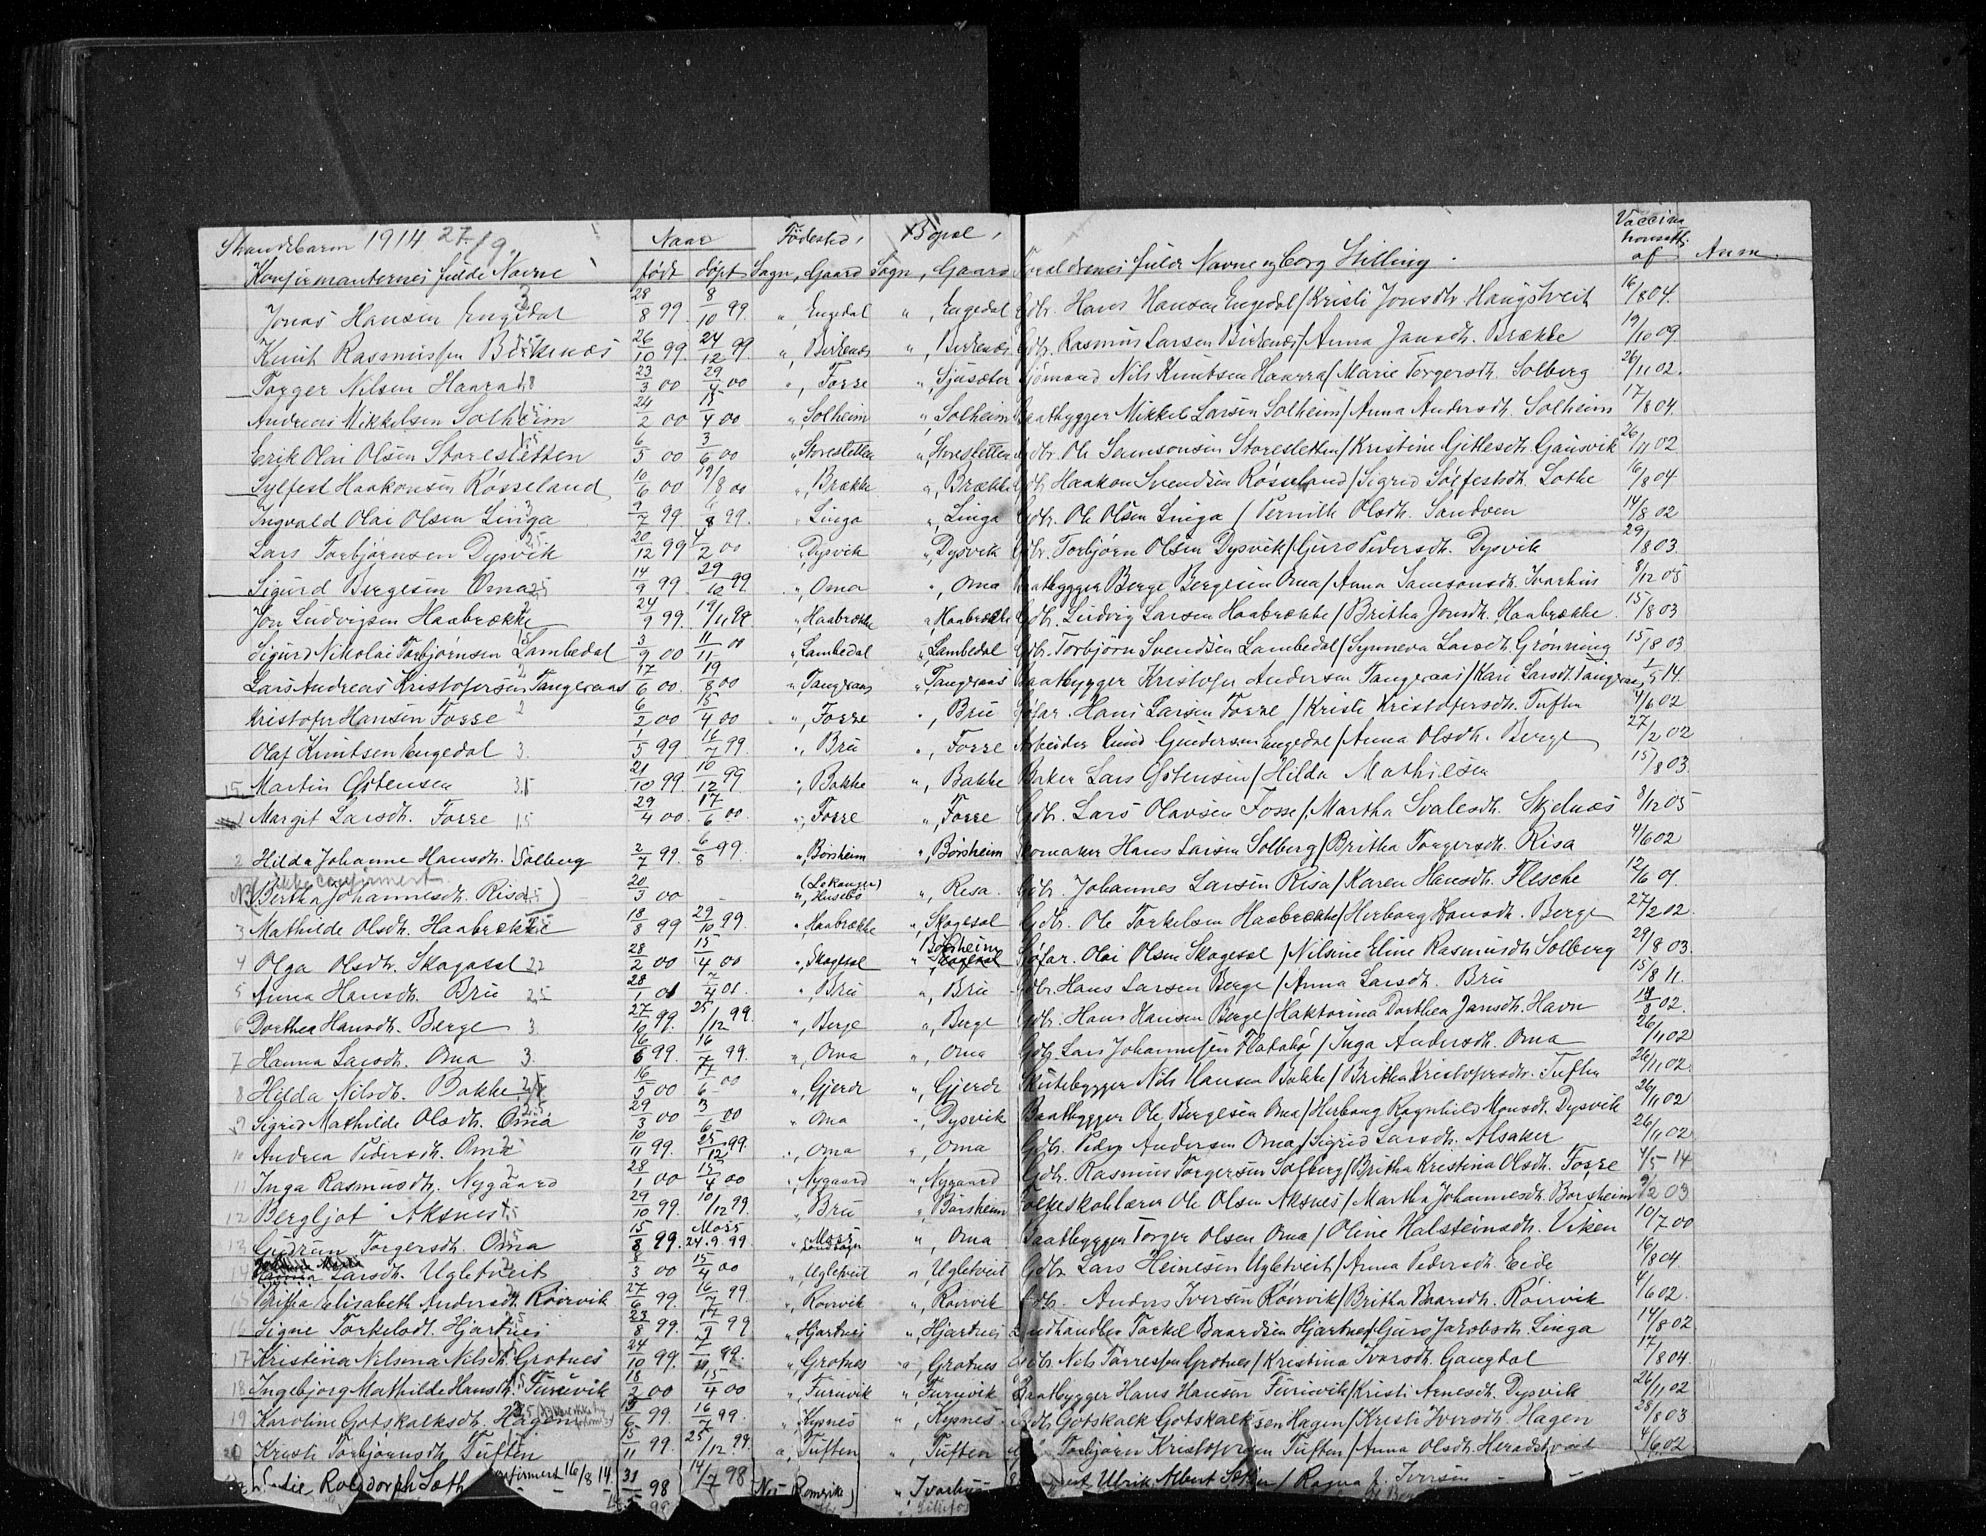 Strandebarm 1914 27/9. Naar Fødested, Bopæl, Vaccina
Konfirmanternes fulde Navne født døpt Sogn, Gaard Sogn, Gaard Forældrenes fulde Navne og borg. Stilling. af Anm.
Jonas Hansen Engedal 3 28/8 99 8/10 99. " Engedal " Engedal Gdbr. Hans Hansen Engedal / Kristi Jonsdtr. Haugstveit 16/8 04.
Knut Rasmussen Birkenæs 26/10 99 24/12 99 " Birkenæs " Birkenæs Gdbr. Rasmus Larsen Birkenæs / Anna Jansdtr. Brække 19/10 09
Torger Nilsen Haara 23/3 00 29/4 00 " Fosse " Sjusæter Sjømand Nils Knutsen Haarra / Marie Torgersdtr. Solberg 26/11 02.
Andreas Mikkelsen Solheim 24/2 00 15/4 00 " Solheim " Solheim Baatbygger Mikkel Larsen Solheim / Anna Andersdtr. Solheim 17/8 04.
Erik Olai Olsen Storesletten 6/5 00 3/6 00 " Storesletten " Storesletten Gdbr. Ole Samsonsen Storesletten / Kristine Gitlesdtr. Gausvik 26/11 02
Sylfest Haakonsen Røsseland 10/6 00 19/8 00 " Brække " Brække Gdb. Haakon Svendsen Røsseland / Sigrid Sølfestsdtr. Lothe 16/8 04
Ingvald Olai Olsen Linga 3 9/7 99 8 99. " Linga " Linga Gdbr. Ole Olsen Linga / Pernille Olsdtr. Sandven 14/8 02
Lars Torbjørnsen Dysvik 2.5 20/12 99 4/2 00 " Dysvik " Dysvik Gdbr. Torbjørn Olsen Dysvik / Guro Pedersdtr. Dysvik 29/8 03
Sigurd Bergesen Oma 2.5 14/9 99. 29/10 99. " Oma " Oma Baatbygger Berge Bergesen Oma / Anna Samsonsdtr. Ivarhus 8/12 05
Jon Ludvigsen Haabrække 24/9 99. 19/11 99 " Haabrække " Haabrække Gdbr. Ludvig Larsen Haabrække / Britha Jonsdtr. Haabrække 15/8 03
Sigurd Nikolai Torbjørnsen Lambedal 3/9 00 11/11 00 " Lambedal " Lambedal Gdbr. Torbjørn Svendsen Lambedal / Synneva Larsdtr. Grønning 15/8 03
Lars Andreas Kristofersen Tangeraas 2 17/6 00. 19/8 00 " Tangeraas " Tangeraas Baatbygger Kristofer Andersen Tangeraas / Kari Larsdtr. Tangeraas 1/5 14.
Kristofer Hansen Fosse 2 6/2 00 15/4 00 " Fosse " Bru Hans Larsen Fosse / Kristi Kristofersdtr. Tuften 4/6 02
Olaf Knutsen Engedal 3. 1/5 99 16/7 99. " Bru " Fosse Arbeider Knud Gundersen Engedal / Anna Olsdtr. Berge 27/2 02
15 Martin Østensen 3.5 21/10 99. 10/12 99 " Bakke " Bakke Baker Lars Østensen / Hilda Mathilsen 15/8 03.
1 Margit Larsdtr. Fosse 1.5 29/4 00. 17/6 00. " Fosse " Fosse Gdbr. Lars Olavsen Fosse / Martha Svalesdtr. Skjelnæs 8/12 05
2 Hilda Johanne Hansdtr. Solberg 2/7 99. 6/8 99. " Børsheim " Børsheim Skomaker Hans Larsen Solberg / Britha Torgersdtr. Risa 4/6 02
ikke confirmert
NB (Bertha Johannesdtr. Risa) 20/3 00 (Lekanger) " Husebø " Risa. Gdbr. Johannes Larsen Risa / Karen Hansdtr. Flesche 12/6 01.
3 Mathilde Olsdtr. Haabrække 18/8 99 29/10 99. " Haabrække " Skogesal Gdbr. Ole Torkelsen Haabrække / Herborg Hansdtr. Berge 27/2 02.
4 Olga Olsdtr. Skogesal 28/2 00 15/4 00 " Skogesal " Børsheim Skogesal Olai Olsen Skogesal / Nilsine Eline Rasmusdtr. Solberg 29/8 03.
5 Anna Hansdtr. Bru 2.5 28/1 01 7/4 01. " Bru " Bru Gdbr. Hans Larsen Berge / Anna Larsdtr. Bru 15/8 11.
6 Dorthea Hansdtr. Berge 3. 27/10 99. 25/12 99. " Berge " Berge Gdbr. Hans Hansen Berge / Haktorina Dorthea Jansdtr. Havn 14/8 02.
7 Hanna Larsdtr. Oma 3. 16/6 99. 16/7 99. " Oma " Oma Gdb. Lars Johannessen Flatabø / Inga Andersdtr. Oma 26/11 02
8 Hilda Nilsdtr. Bakke 16/5 00 17/6 00 " Gjerde " Gjerde Skutebygger Nils Hansen Bakke / Britha Kristofersdtr. Tuften 26/11 02.
9 Sigrid Mathilde Olsdtr. Oma 29/3 00 3/6 00 " Oma " Dysvik Baatbygger Ole Bergesen Oma / Herborg Ragnhild Monsdtr. Dysvik 26/11 02
10 Andrea Pedersdtr. Oma 10/11 99. 25/12 99. " Oma " Oma Gdb. Peder Andersen Oma / Sigrid Larsdtr. Alsaker 26/11 02
11 Inga Rasmusdtr. Nygaard 28/1 00 15/4 00 " Nygaard " Nygaard Gdb. Rasmus Torgersen Solberg / Britha Kristina Olsdtr. Fosse 4/5 14
12 Bergljot Aksnes 29/10 99. 10/12 99. " Bru " Børsheim Folkeskolelærer Ole Olsen Aksnes / Martha Johannesdtr. Børsheim 9/2 03
13 Gudrun Torgersdtr. Oma 15/8 99. Moss 24.9.99. " Moss Landsogn " Oma Baatbygger Torger Olsen Oma / Oline Halsteinsdtr. Viken 10/7 00
14 Larsdtr. Ugletveit 8/3 00 15/4 00 " Ugletveit " Ugletveit Gdb. Lars Heinesen Ugletveit / Anna Pedersdtr. Eide 16/8 04
15 Britha Elisabeth Andersdtr. Røirvik 27/6 99. 16/7 99. " Røirvik " Røirvik Gdb. Anders Iversen Røirvik / Britha Baarsdtr. Røirvik 4/6 02.
16 Signe Torkelsdtr. Hjartnes 23/8 99. 17/9 99 " Hjartnes " Hjartnes Landhandler Torkel Baardsen Hjartnes / Guro Jakobsdtr. Linga 14/8 02
17 Kristina Nilsina Nilsdtr. Grotnes 24/10 99. 99. " Grotnes " Grotnes Gdbr. Nils Torressen Grotnes / Kristina Ivarsdtr. Gangdal 17/8 04.
18 Ingebjørg Mathilde Hansdtr. Furuvik 18/2 00 15/4 00 " Furuvik " Furuvik Baatbygger Hans Hansen Furuvik / Kristi Arnesdtr. Dysvik 26/11 02
19 Karoline Gotskalksdtr. Hagen 13/6 99. 16/7 99. " Kysnes " Kysnes Gdb. Gotskalk Gotskalksen Hagen / Kristi Iversdtr. Hagen 28/8 03
20 Kristi Torbjørnsdtr. Tuften 15/11 99. 25/12 99. " Tuften " Tuften Torbjørn Kristofersen Tuften / Anna Olsdtr. Heradstveit 4/6 02
Rolsdorph Sæth confirmert 16/8 14. 31 98 14/7 98 Romerike) " Ivarhus Ulrik Albert Sæther / Ragna Iversen